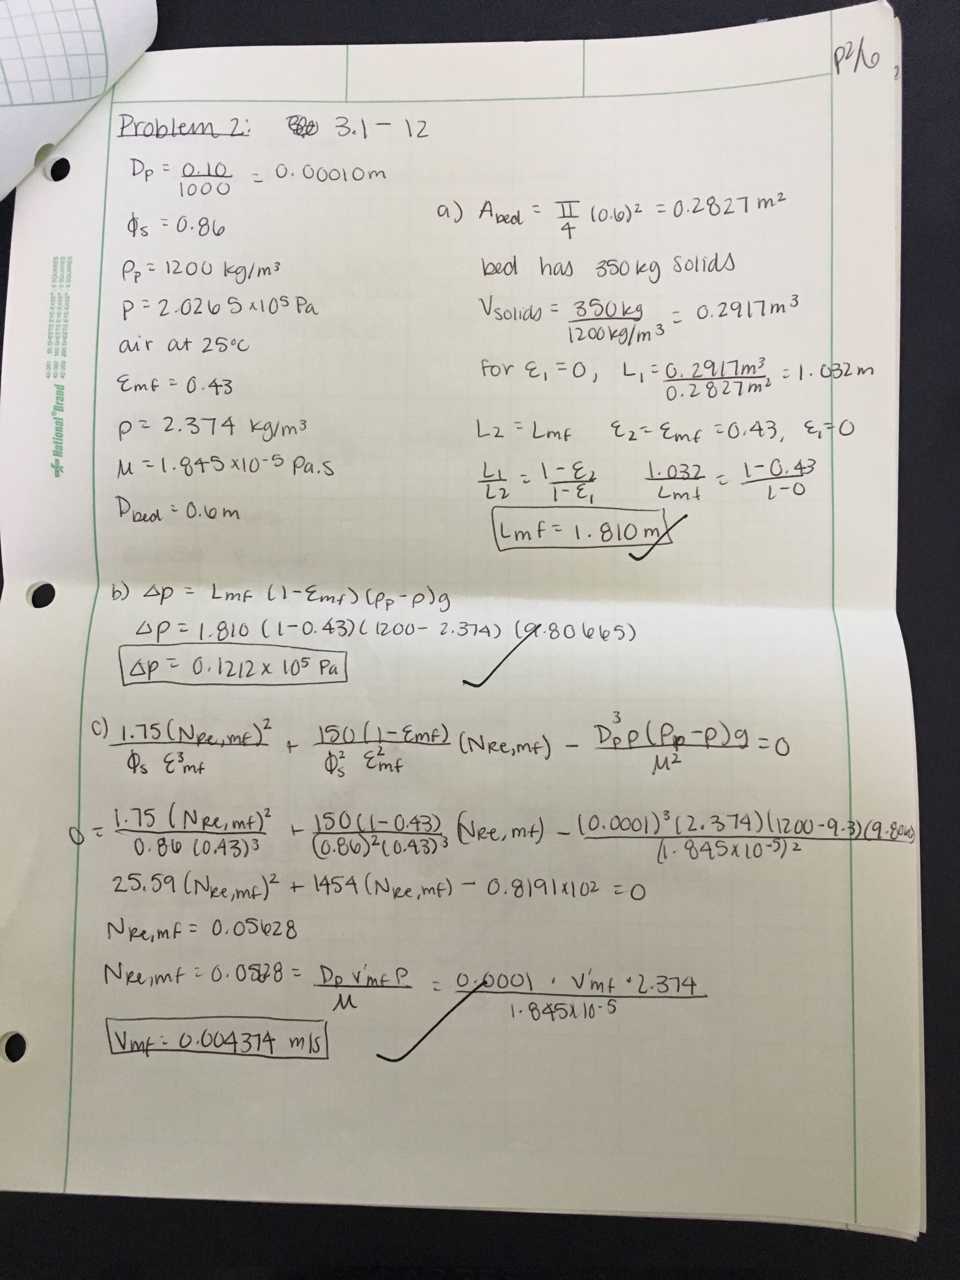 P2/6
2
Problem 2: 3.1-12
Dp = 0.10/1000 = 0.00010m
ϕs = 0.86
ρp = 1200 kg/m³
P = 2.0265 x10⁵ Pa
air at 25°C
Ɛmf = 0.43
ρ = 2.374 kg/m³
μ = 1.845 x10⁻⁵ Pa.s
Dbed = 0.6m
a) Abed = π/4 (0.6)² = 0.2827 m²
bed has 350 kg solids
Vsolids = 350kg/1200kg/m³ = 0.2917m³
for Ɛ₁ = 0, L₁ = 0.2917m³/0.2827m² = 1.032m
L2 = Lmf Ɛ₂ = Ɛmf = 0.43, Ɛ₁=0
L1/L2 = 1-Ɛ₂/1-Ɛ₁ 1.032/Lmf = 1-0.43/1-0
Lmf = 1.810 m
b) Δp = Lmf (1-Ɛmf) (ρp-ρ)g
Δp = 1.810 (1-0.43)(1200-2.374) (9.80665)
Δp = 0.1212 x 10⁵ Pa
c) 1.75(NRe,mf)²/ϕs Ɛ³mf + 150(1-Ɛmf)/ϕs² Ɛ²mf (NRe,mf) - Dp³ρ(ρp-ρ)g/μ² = 0
0 = 1.75 (NRe,mf)²/0.86 (0.43)³ + 150(1-0.43)/(0.86)²(0.43)³ (NRe,mf) - (0.0001)³(2.374)(1200-9.3)(9.806)/(1.845x10⁻⁵)²
25.59 (NRe,mf)² + 1454 (NRe,mf) - 0.8191x10² = 0
NRe,mf = 0.05628
NRe,mf = 0.0528 = Dp v'mf ρ/μ = 0.0001 · v'mf · 2.374/1.845x10⁻⁵
Vmf = 0.004374 m/s
National® Brand